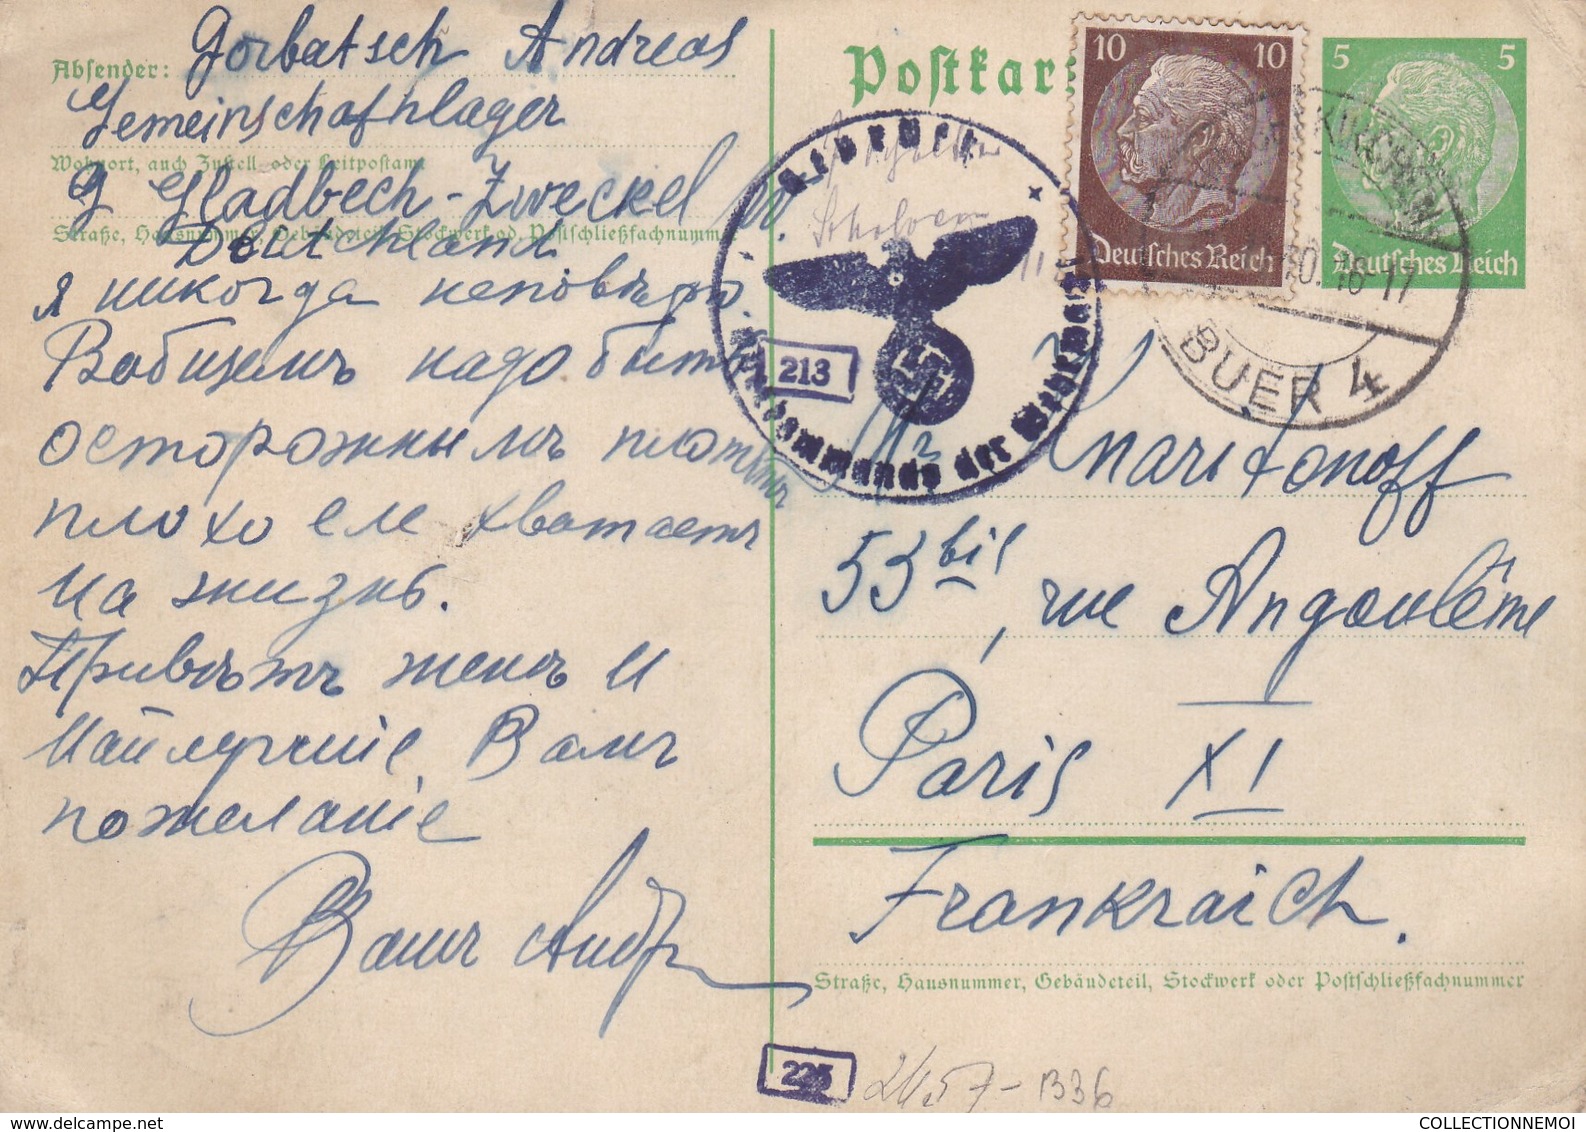 Absender: Gorbatsch Andreas
Gemeinschaftlager
Wohnort, auch Zustell- oder Leitpostamt
G Gladbech-Zweckel W.
Straße, Hausnummer, Gebäudeteil, Stockwerk od. Postschließfachnummer
Deutchland
я никогда неповѣрю
Вобщемъ надо быть
осторожнымъ
плохо еле хватаетъ
на жизнь.
Привѣтъ женѣ и
Найлучшіе Вамъ
пожеланіе
Вашъ
Postkar
10 10
Deutsches Reich
5 5
Deutsches Reich
KIRCHEN
16-17
BUER 4
Geprüft
Oberkommando der Wehrmacht
213
Mr Kharitonoff
53 bis, rue Angoulême
Paris XI
Frankraich.
Straße, Hausnummer, Gebäudeteil, Stockwerk oder Postschließfachnummer
225
2457-B36
COLLECTIONNEMOI